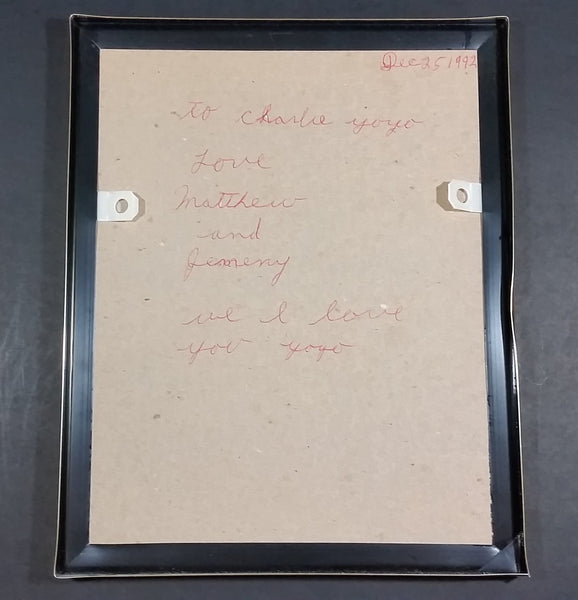 Dec 25 1992
To Charlie yoyo
Love
Matthew
and
Jemeny
we l love
you yoyo